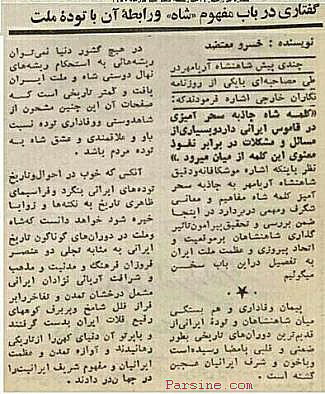 گفتاری در باب مفهوم «شاه» و رابطهٔ آن با تودهٔ ملت
نویسنده: خسرو معتضد
چندی پیش شاهنشاه آریامهر در
طی مصاحبه‌ای با یکی از روزنامه
نگاران خارجی اشاره فرمودند که:
«کلمه شاه جاذبه سحر آمیزی
در قاموس ایرانی دارد و بسیاری از
مسائل و مشکلات در برابر نفوذ
معنوی این کلمه از میان میرود.»
نظر باینکه اشاره موشکافانه و دقیق
شاهنشاه آریامهر به جاذبه سحر
آمیز کلمه شاه مفاهیم و معانی
شگرف و مهمی در بر دارد در اینجا
ضمن بررسی و تحقیق پیرامون تأثیر
گذاری شاهنشاهان بر موقعیت و
اتحاد نیروزی و عظمت ملت ایران
به تفصیل در این باب سخن
میگوئیم
پیمان وفاداری و هم بستگی
میان شاهنشاهان و تودهٔ ایرانی از
قدیم‌ترین دوران‌های تاریخی بطور
ضمنی و قلبی بامضا رسیده است
و با خون و شرف ایرانیان عجین
گشته است.
در هیچ کشور دنیا نمی‌توان
ریشه‌هائی به استحکام ریشه‌های
نهال دوستی شاه و ملت ایران
یافت و کمتر تاریخی است که
صفحات آن این چنین مشحون از
شاهدوستی و وفاداری توده نسبت
به او و علاقمندی و عشق شاه به
توده مردم باشد.
آنکس که خوب در احوال و تاریخ
توده‌های ایرانی بنگرد و فراسیمای
ظاهری تاریخ به نکته‌ها و زوایا
خیره شود خواهد دانست که شاه
و ملت در دوران‌های گوناگون تاریخ
ایرانی به مثابه تجلی دو عنصر
فروزان فرهنگ و مدنیت و مذهب
و شرافت آریائی نژادان ایرانی
مشعل درخشان تمدن و تفاخر را بر
فراز قلل شامخ و پر برف کوههای
رفیع فلات ایران بدست گرفتند
و با پرتو آن دنیای کهن را از تاریکی
رهانیدند و آوازه تمدن و عظمت
ایرانیان و مفهوم شریف ایرانیت را
در جهان در دادند.
Parsine.com